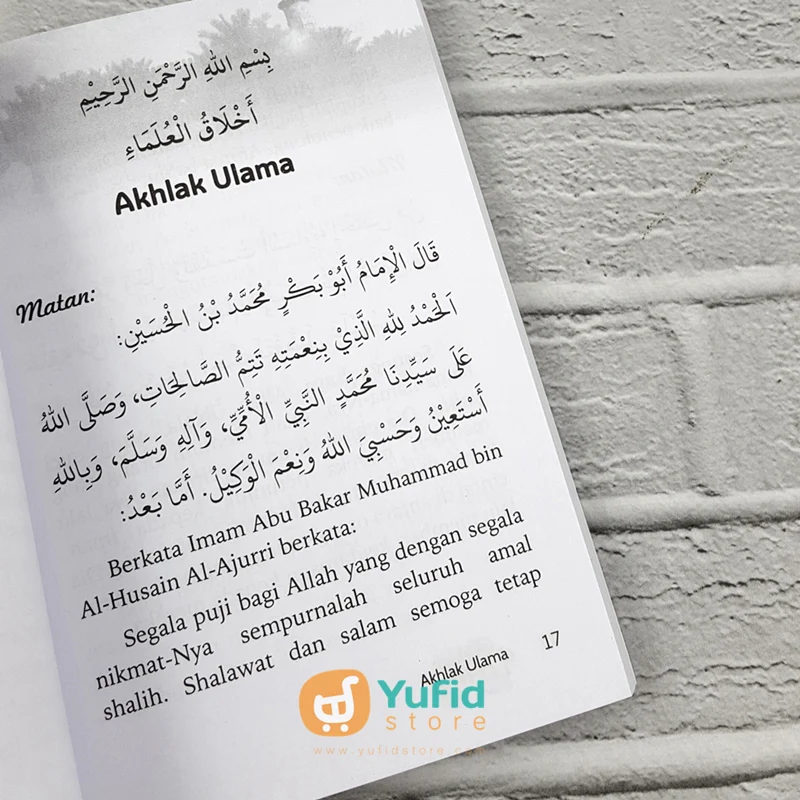 بِسْمِ اللهِ الرَّحْمَنِ الرَّحِيْمِ
أَخْلَاقُ الْعُلَمَاءِ
Akhlak Ulama
Matan:
قَالَ الْإِمَامُ أَبُوْ بَكْرٍ مُحَمَّدُ بْنُ الْحُسَيْنِ:
اَلْحَمْدُ لِلهِ الَّذِيْ بِنِعْمَتِهِ تَتِمُّ الصَّالِحَاتِ، وَصَلَّى اللهُ
عَلَى سَيِّدِنَا مُحَمَّدٍ النَّبِيِّ الْأُمِّيِّ، وَآلِهِ وَسَلَّمَ، وَبِاللهِ
أَسْتَعِيْنُ وَحَسْبِيَ اللهُ وَنِعْمَ الْوَكِيْلُ. أَمَّا بَعْدُ:
Berkata Imam Abu Bakar Muhammad bin
Al-Husain Al-Ajurri berkata:
Segala puji bagi Allah yang dengan segala
nikmat-Nya sempurnalah seluruh amal
shalih. Shalawat dan salam semoga tetap
Akhlak Ulama 17
Yufid
store
www.yufidstore.com